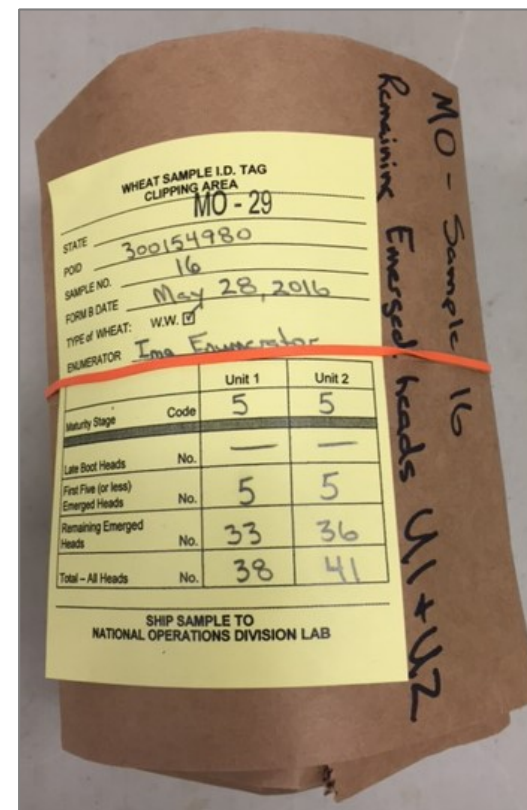 WHEAT SAMPLE I.D. TAG
CLIPPING AREA
MO - 29
STATE
POID 300154980
SAMPLE NO. 16
FORM B DATE May 28, 2016
TYPE of WHEAT: W.W. ☑
ENUMERATOR Ima Enumerator
Unit 1 Unit 2
Maturity Stage Code 5 5
Late Boot Heads No. — —
First Five (or less)
Emerged Heads No. 5 5
Remaining Emerged
Heads No. 33 36
Total – All Heads No. 38 41
SHIP SAMPLE TO
NATIONAL OPERATIONS DIVISION LAB
MO - Sample 16
Remaining Emerged heads U1 + U2